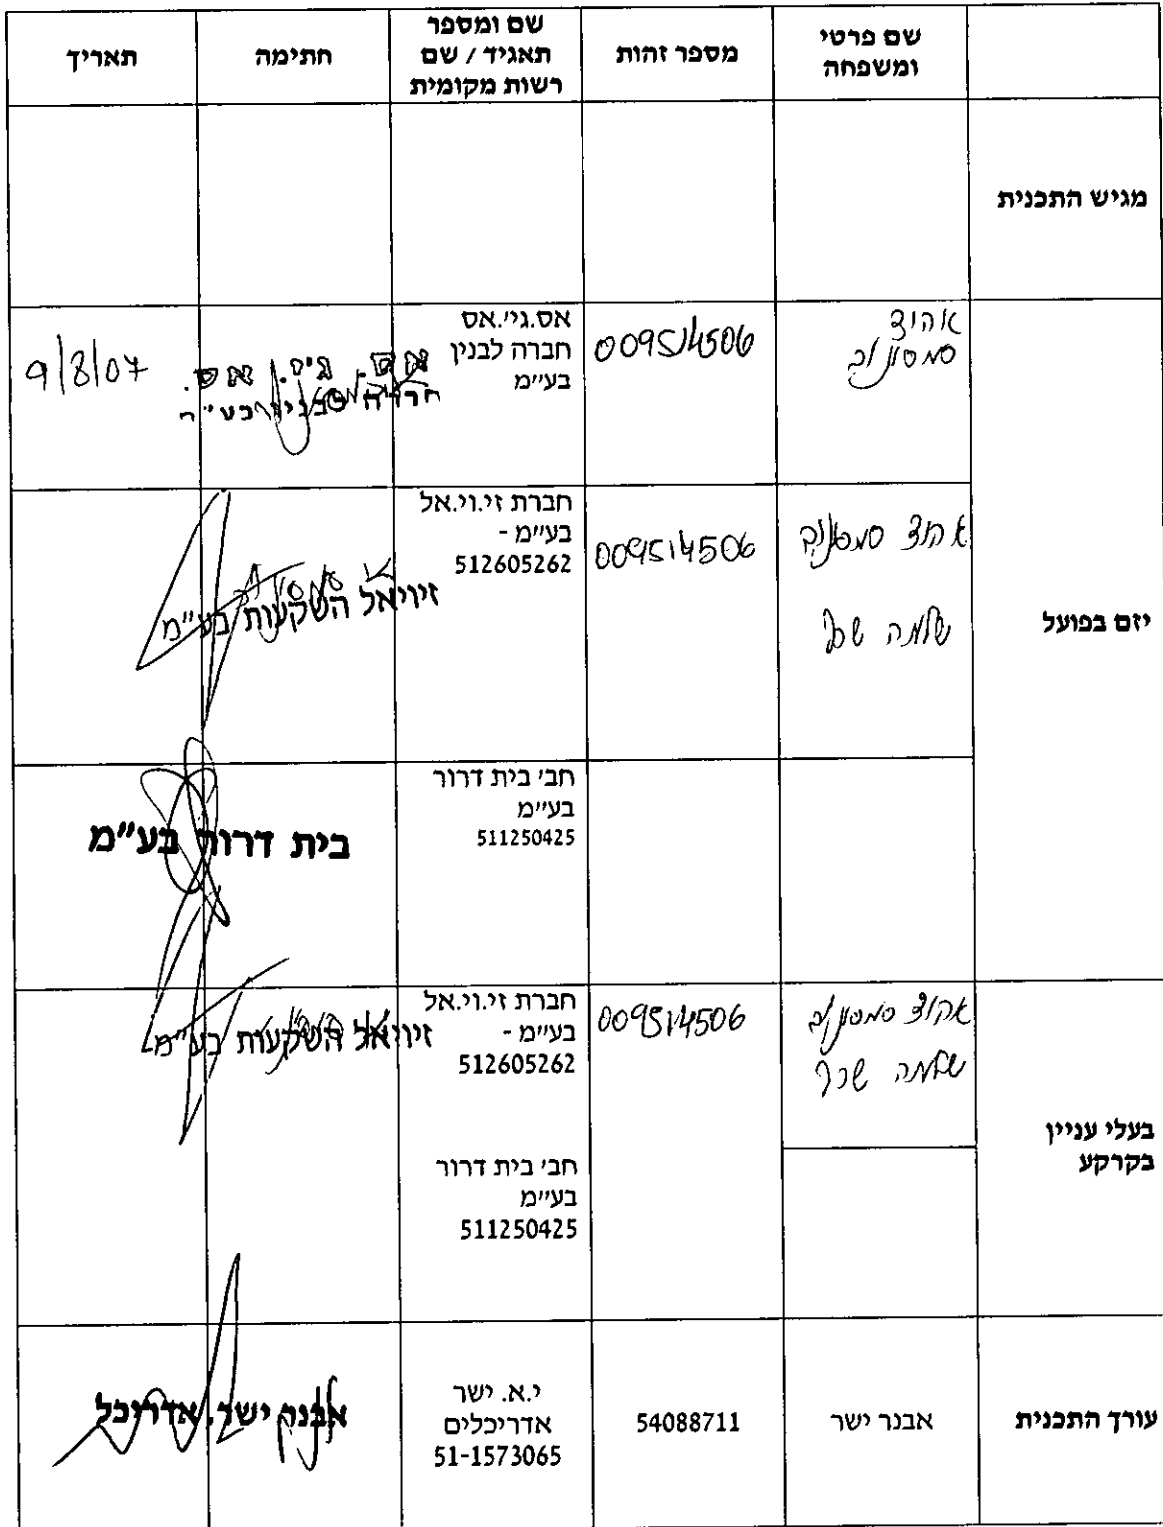 שם פרטי
ומשפחה
מספר זהות
שם ומספר
תאגיד / שם
רשות מקומית
חתימה
תאריך
מגיש התכנית
יזם בפועל
אהוד
סמסונוב
009514506
אס.גיי.אס
חברה לבנין
בעיימ
אס. ג'י. אס.
חברה לבנין בע"מ
9/8/07
אהוד סמסונוב
שלמה
009514506
חברת זי.וי.אל
בעיימ -
512605262
זיויאל השקעות בע"מ
חבי בית דרור
בעיימ
511250425
בית דרור בע"מ
בעלי עניין
בקרקע
אהוד סמסונוב
שלמה
009514506
חברת זי.וי.אל
בעיימ -
512605262
זיויאל השקעות בע"מ
חבי בית דרור
בעיימ
511250425
עורך התכנית
אבנר ישר
54088711
י.א. ישר
אדריכלים
51-1573065
אבנר ישר, אדריכל